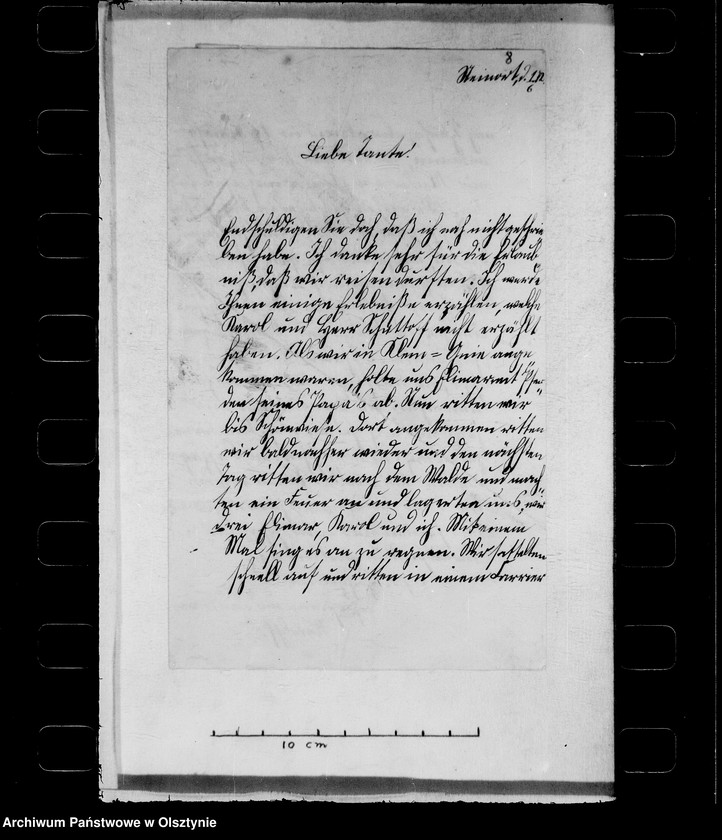 8
Steinort, d.
Liebe Tante!
Endschuldigen Sie doch daß ich noh nicht geschrie
ben habe. Ich danke sehr für die Erlaub
niß, daß wir reisen durften. Ich werde
Ihnen einige Erlebniße erzählten, welche
Karol und Herr Schattoff nicht erzählt
haben. Als wir in Klein=Gnie ange
kommen waren, holte uns Elimar mit Pfer
den seines Papa's ab. Nun ritten wir
bis Schönwiese. Dort angekommen ritten
wir bald nachher wieder und den nächsten
Tag ritten wir nach dem Walde und mach
ten ein Feuer an und lagerten uns, wir
drei Elimar, Karol und ich. Mit einem
Mal fing es an zu regnen. Wir sattelten
schnell auf und ritten in einem Carrier
10 cm
Archiwum Państwowe w Olsztynie